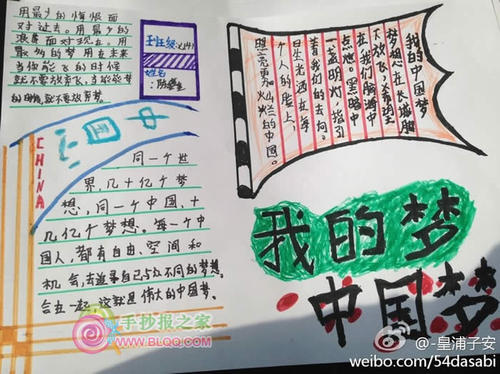 用最少的悔恨面
对过去。用最少的
浪费面对现在。用
最多的梦面在未来
当你能飞的时候
就不要放弃飞。当你能梦
的时候,就不要放弃梦
班级
姓名:
我的中国梦
梦想在长城脚
下放飞,希望
在我们胸海中
点燃。黑暗中
一盏明灯,指引
着我们的去向。
日生光洒在每
个人的脸上,
照亮更加灿烂的中国。
CHINA
中国
同一个世
界,几十亿个梦
想,同一个中国,十
几亿个梦想。每一个中
国人,都有自由、空间和
机会,去追寻自己与众不同的梦想。
合在一起,这就是伟大的中国梦。
我的梦
中国梦
手抄报之家
WWW.BLQQ.COM
@-皇浦子安
weibo.com/54dasabi